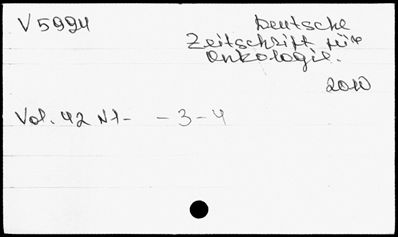 V 5994
Deutsche
Zeitschrift für
Onkologie.
2010
Vol. 42 N1- - 3 - 4